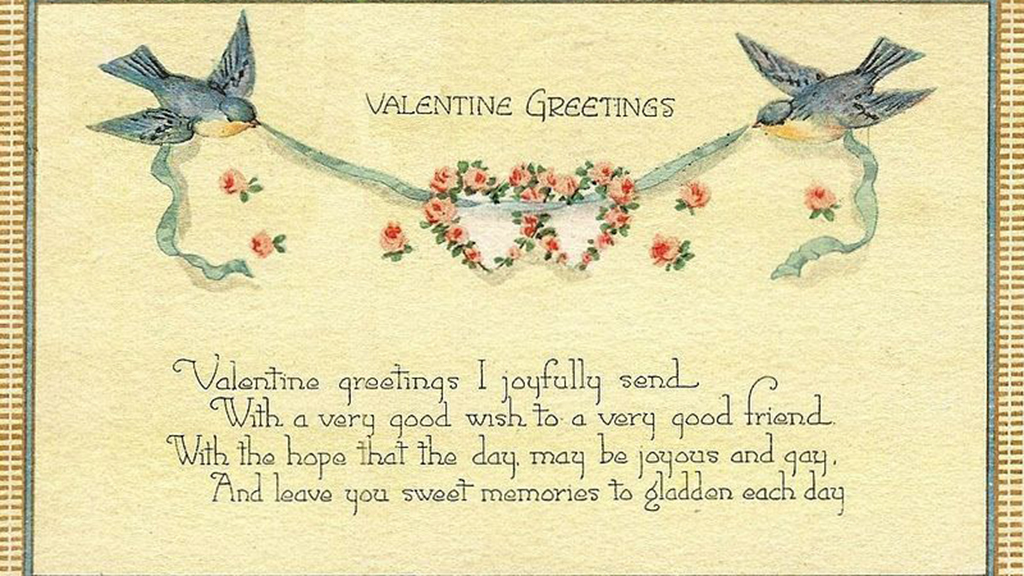 VALENTINE GREETINGS
Valentine greetings I joyfully send
With a very good wish to a very good friend.
With the hope that the day, may be joyous and gay,
And leave you sweet memories to gladden each day